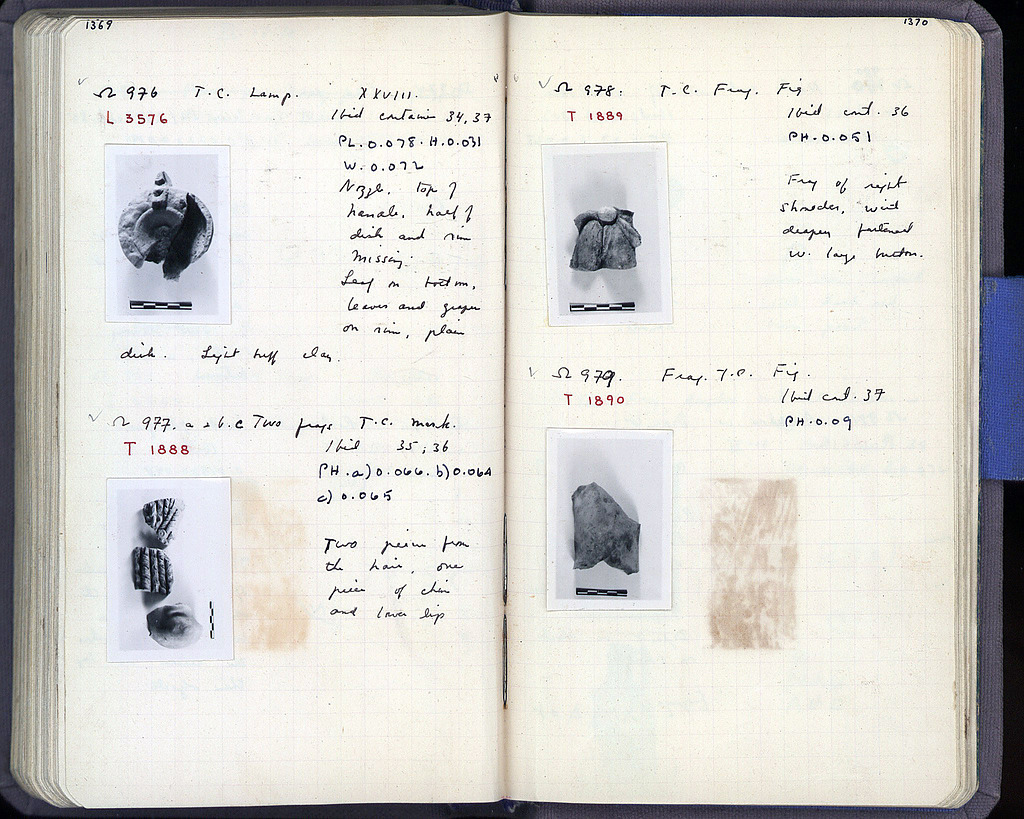 1369
Ω 976 T.C. Lamp. XXVIII.
L 3576
Ibid container 34, 37
PL. 0.078. H. 0.031
W. 0.072
Nozzle, top of
handle, half of
disk and rim
missing.
Leaf on bottom,
leaves and grapes
on rim, plain
disk. Light buff clay.
Ω 977. a + b. c Two frags T.C. mask.
T 1888
Ibid 35, 36
PH. a) 0.066. b) 0.064
c) 0.065
Two pieces from
the hair, one
piece of chin
and lower lip
1370
Ω 978. T.C. Frag. Fig
T 1889
Ibid cont. 36
PH. 0.051
Frag of right
shoulder, with
drapery fastened
w. large button.
Ω 979. Frag. T.C. Fig.
T 1890
Ibid cont. 37
PH. 0.09